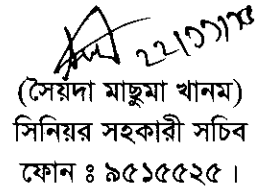 ২২/১১/১৫
(সৈয়দা মাছুমা খানম)
সিনিয়র সহকারী সচিব
ফোন ঃ ৯৫১৫৫২৫ ।